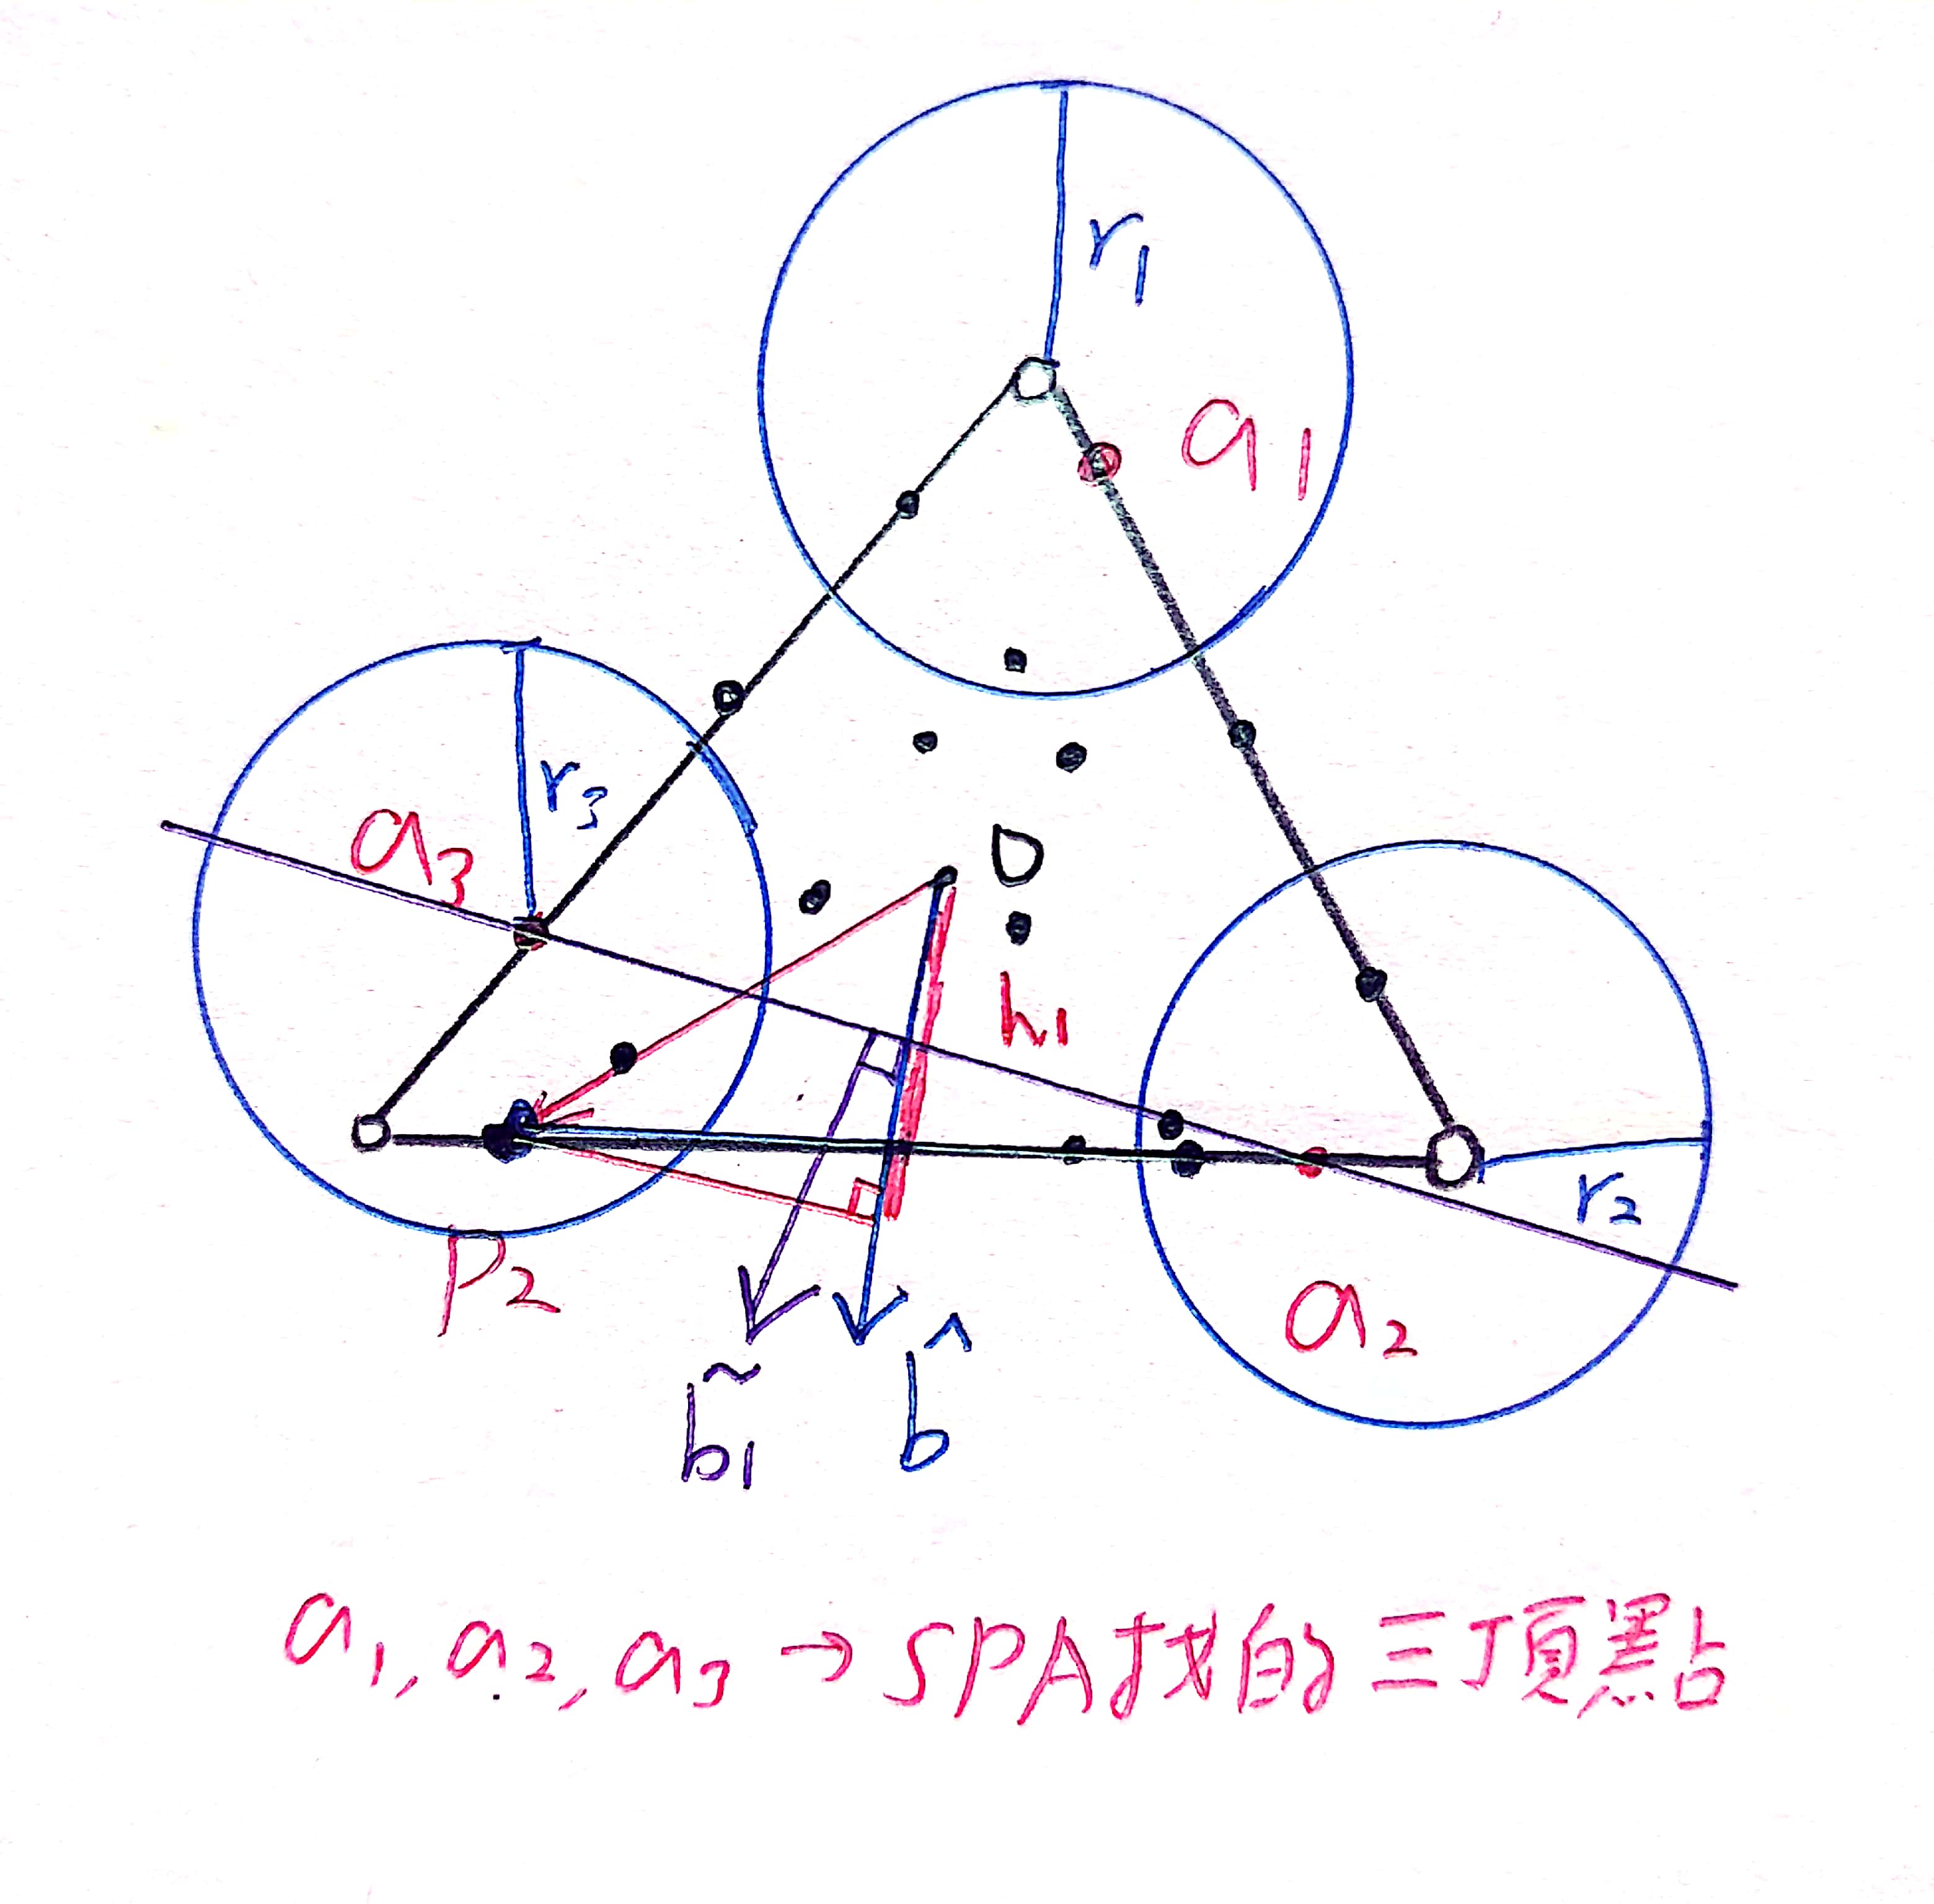 r₁
a₁
r₃
a₃
O
h₁
r₂
p₂
a₂
b̃₁
b̂
a₁, a₂, a₃ → SPA找的三頂點